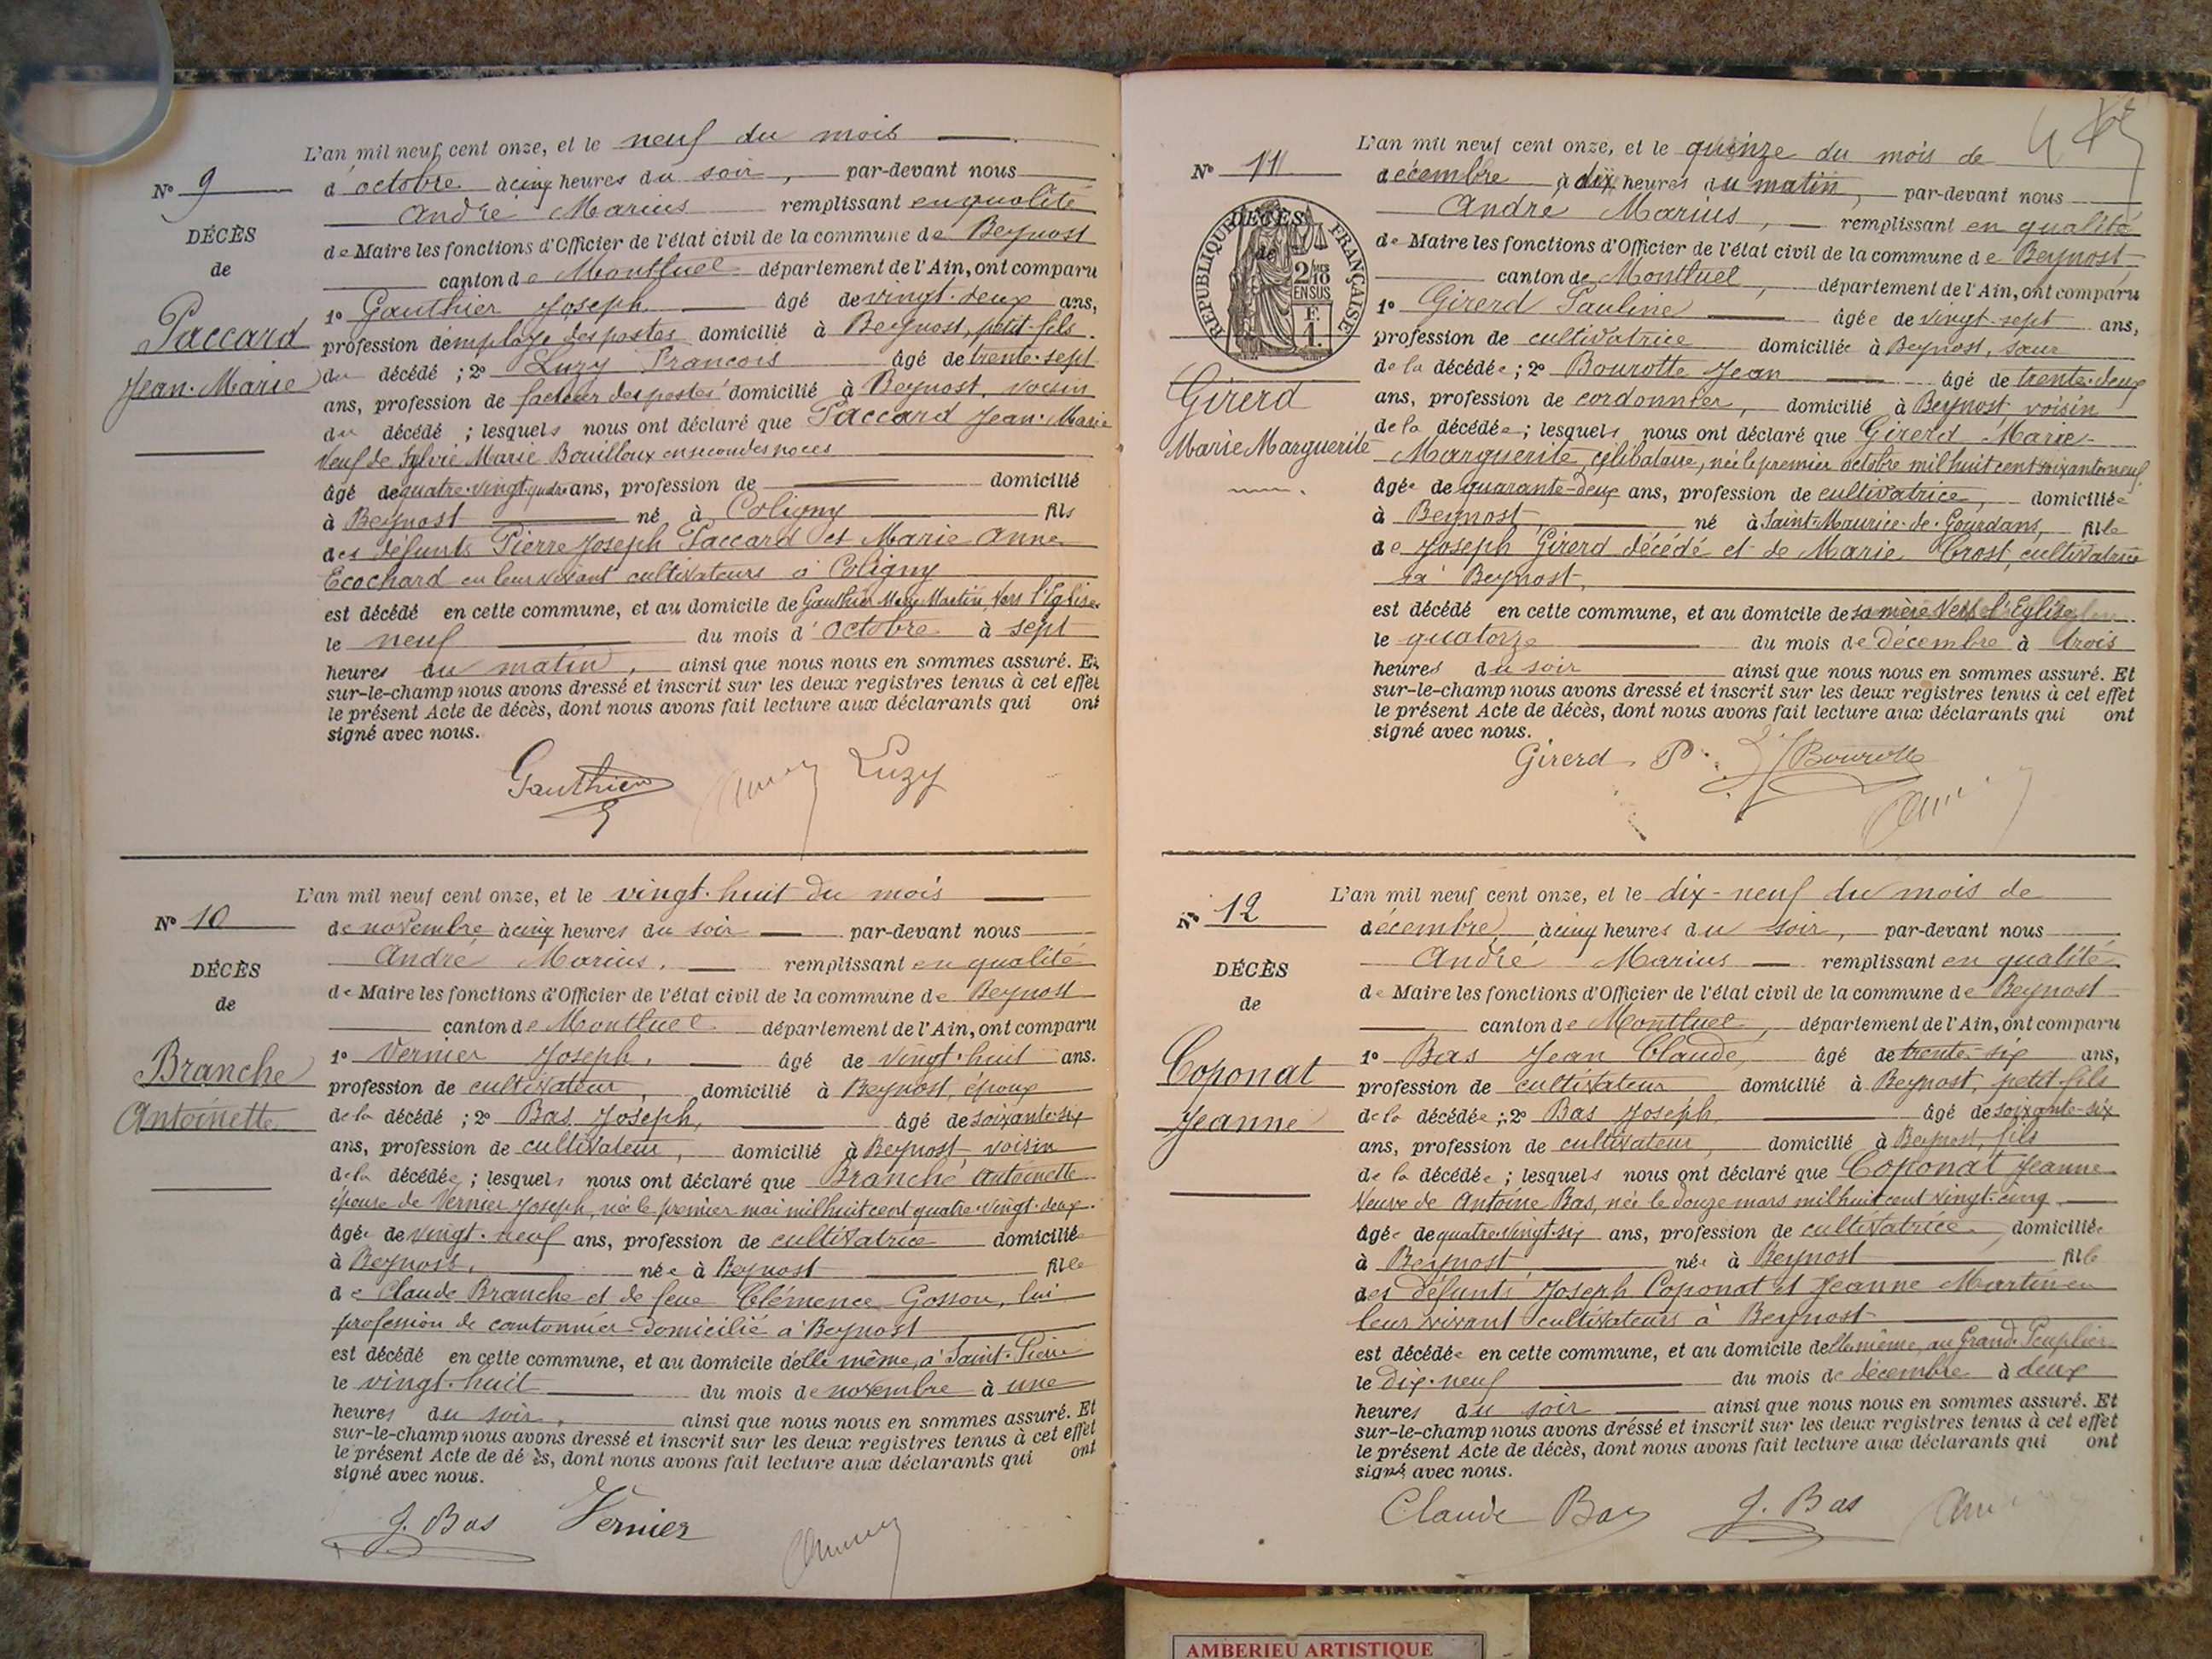 L'an mil neuf cent onze, et le neuf du mois
N° 9
d'octobre à cinq heures du soir, par-devant nous
André Marius remplissant en qualité
DÉCÈS
de Maire les fonctions d'Officier de l'état civil de la commune de Beynost
de
canton de Montluel département de l'Ain, ont comparu
1° Gauthier Joseph âgé de vingt-deux ans,
Paccard
profession d'employé des postes domicilié à Beynost, petit-fils
Jean-Marie
du décédé ; 2° Luzy Francois âgé de trente-sept
ans, profession de facteur des postes domicilié à Beynost, voisin
du décédé ; lesquels nous ont déclaré que Paccard Jean-Marie
Veuf de Sylvie Marie Bouilloux en secondes noces
âgé de quatre-vingt-quatre ans, profession de domicilié
à Beynost né à Coligny fils
des défunts Pierre Joseph Paccard et Marie Anne
Ecochard en leur vivant cultivateurs à Coligny
est décédé en cette commune, et au domicile de Gauthier Martin, Vers l'Eglise
le neuf du mois d'octobre à sept
heures du matin, ainsi que nous nous en sommes assuré. Et
sur-le-champ nous avons dressé et inscrit sur les deux registres tenus à cet effet
le présent Acte de décès, dont nous avons fait lecture aux déclarants qui ont
signé avec nous.
Gauthier Luzy
L'an mil neuf cent onze, et le vingt-huit du mois
N° 10
de novembre à cinq heures du soir par-devant nous
André Marius. remplissant en qualité
DÉCÈS
de Maire les fonctions d'Officier de l'état civil de la commune de Beynost
de
canton de Montluel département de l'Ain, ont comparu
1° Vernier Joseph, âgé de vingt-huit ans.
Branche
profession de cultivateur, domicilié à Beynost, époux
Antoinette
de la décédé ; 2° Bas Joseph, âgé de soixante-six
ans, profession de cultivateur, domicilié à Beynost voisin
de la décédée ; lesquels nous ont déclaré que Branche Antoinette
épouse de Vernier Joseph, née le premier mai mil huit cent quatre-vingt-deux.
âgée de vingt-neuf ans, profession de cultivatrice domiciliée
à Beynost, née à Beynost fille
de Claude Branche et de feue Clémence Gosson, lui
profession de cantonnier domicilié à Beynost
est décédé en cette commune, et au domicile d'elle même, à Saint-Pierre
le vingt-huit du mois de novembre à une
heures du soir, ainsi que nous nous en sommes assuré. Et
sur-le-champ nous avons dressé et inscrit sur les deux registres tenus à cet effet
le présent Acte de dé ès, dont nous avons fait lecture aux déclarants qui ont
signé avec nous.
J. Bas Vernier
L'an mil neuf cent onze, et le quinze du mois de
N° 11
décembre à dix heures du matin, par-devant nous
André Marius, remplissant en qualité
RÉPUBLIQUE FRANÇAISE
DÉCÈS
de
2/10 EN SUS
F. 1.
de Maire les fonctions d'Officier de l'état civil de la commune de Beynost
canton de Montluel, département de l'Ain, ont comparu
1° Girerd Pauline âgée de vingt-sept ans,
profession de cultivatrice domiciliée à Beynost, sœur
Girerd
de la décédée ; 2° Bourotte Jean âgé de trente-deux
ans, profession de cordonnier, domicilié à Beynost, voisin
Marie Marguerite
de la décédée ; lesquels nous ont déclaré que Girerd Marie
Marguerite, célibataire, née le premier octobre mil huit cent soixante-neuf,
âgée de quarante-deux ans, profession de cultivatrice, domiciliée
à Beynost, né à Saint-Maurice-de-Gourdans, fille
de Joseph Girerd décédé et de Marie Crost, cultivatrice
à Beynost,
est décédé en cette commune, et au domicile de sa mère Vers l'Eglise
le quatorze du mois de décembre à trois
heures du soir ainsi que nous nous en sommes assuré. Et
sur-le-champ nous avons dressé et inscrit sur les deux registres tenus à cet effet
le présent Acte de décès, dont nous avons fait lecture aux déclarants qui ont
signé avec nous.
Girerd P. J Bourotte
L'an mil neuf cent onze, et le dix-neuf du mois de
N° 12
décembre à cinq heures du soir, par-devant nous
André Marius remplissant en qualité
DÉCÈS
de Maire les fonctions d'Officier de l'état civil de la commune de Beynost
de
canton de Montluel, département de l'Ain, ont comparu
1° Bas Jean Claude, âgé de trente-six ans,
Coponat
profession de cultivateur domicilié à Beynost, petit-fils
Jeanne
de la décédée ; 2° Bas Joseph âgé de soixante-six
ans, profession de cultivateur, domicilié à Beynost, fils
de la décédée ; lesquels nous ont déclaré que Coponat Jeanne
Veuve de Antoine Bas, née le douze mars mil huit cent vingt-cinq
âgée de quatre-vingt-six ans, profession de cultivatrice, domiciliée
à Beynost née à Beynost fille
des défunts Joseph Coponat et Jeanne Martin en
leur vivant cultivateurs à Beynost
est décédée en cette commune, et au domicile d'elle même, au Grand-Peuplier
le dix-neuf du mois de décembre à deux
heures du soir ainsi que nous nous en sommes assuré. Et
sur-le-champ nous avons dréssé et inscrit sur les deux registres tenus à cet effet
le présent Acte de décès, dont nous avons fait lecture aux déclarants qui ont
signé avec nous.
Claude Bas J. Bas
AMBERIEU ARTISTIQUE